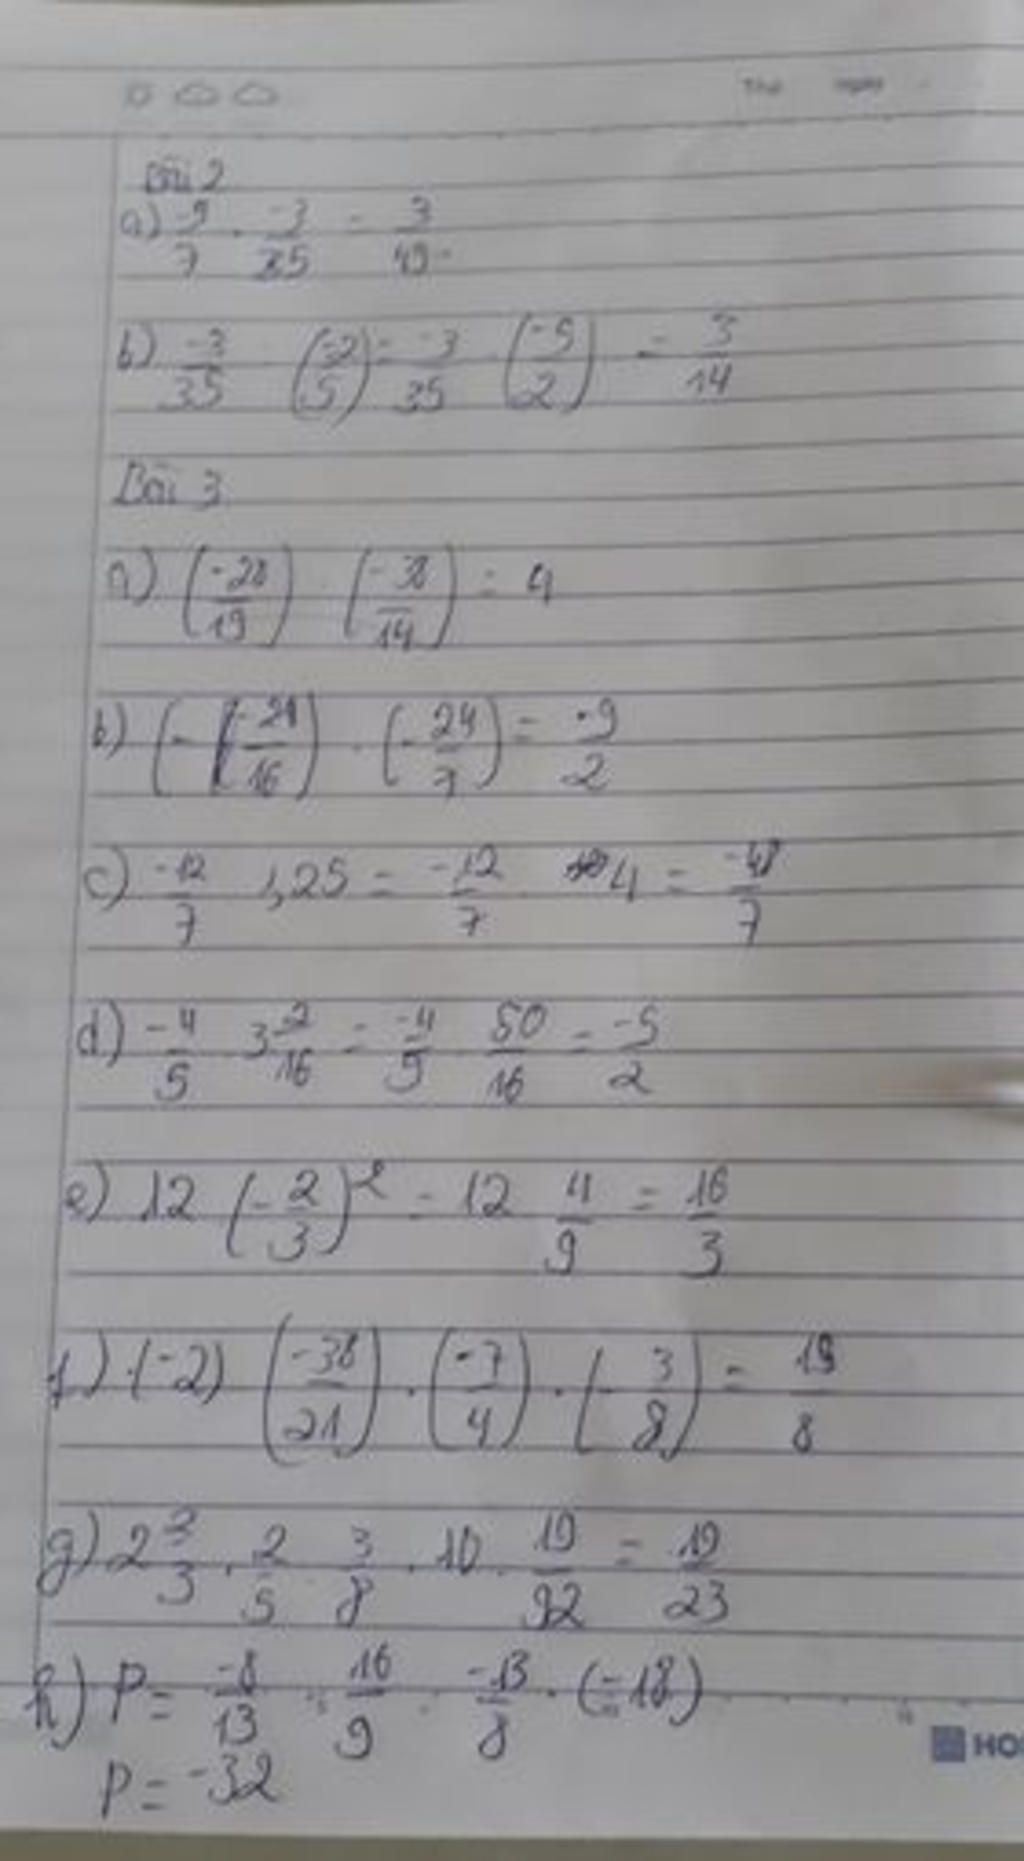 Thứ ngày
Bài 2
a) -5/7 . -3/35 = 3/49
b) -3/35 (-2/5) = -3/35 . (-5/2) = 3/14
Bài 3
a) (-28/19) . (-38/14) = 4
b) (-(-21/16)) . (-24/7) = -9/2
c) -12/7 1,25 = -12/7 . 4 = -48/7
d) -4/5 3 2/16 = -4/5 . 50/16 = -5/2
e) 12 (-2/3)² = 12 4/9 = 16/3
f) (-2) (-38/21) . (-7/4) . (-3/8) = 19/8
g) 2 2/3 . 2/5 3/8 . 10 . 19/92 = 19/23
h) P = -8/13 . 16/9 . -13/8 . (-18)
P = -32